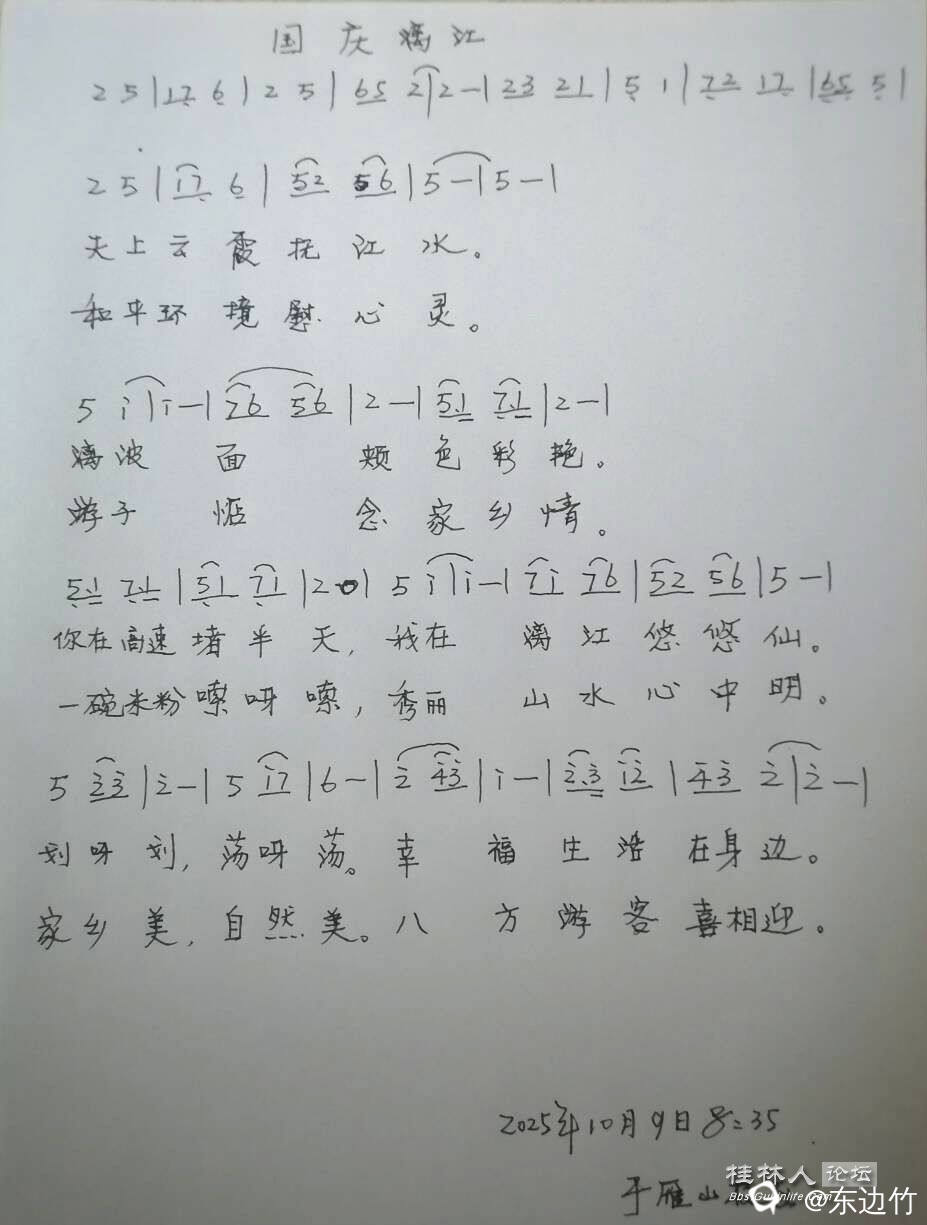 国庆漓江
2 5 | 17 6 | 2 5 | 65 2 | 2 - | 23 21 | 5 1 | 72 17 | 65 5 |
2 5 | 17 6 | 52 56 | 5 - | 5 - |
天上云霞抚江水。
和平环境慰心灵。
5 i | i - | 76 56 | 2 - | 51 71 | 2 - |
漓波面颊色彩艳。
游子惦念家乡情。
51 71 | 51 71 | 2 0 | 5 i | i - | 7i 76 | 52 56 | 5 - |
你在高速堵半天,我在漓江悠悠仙。
一碗米粉嗦呀嗦,秀丽山水心中明。
5 23 | 2 - | 5 i7 | 6 - | 2 43 | i - | 2.3 i2 | 43 2 | 2 - |
划呀划,荡呀荡。幸福生活在身边。
家乡美,自然美。八方游客喜相迎。
2025年10月9日8:35
于雁山
桂林人论坛
Bbs.Guilinlife.Com
@东边竹